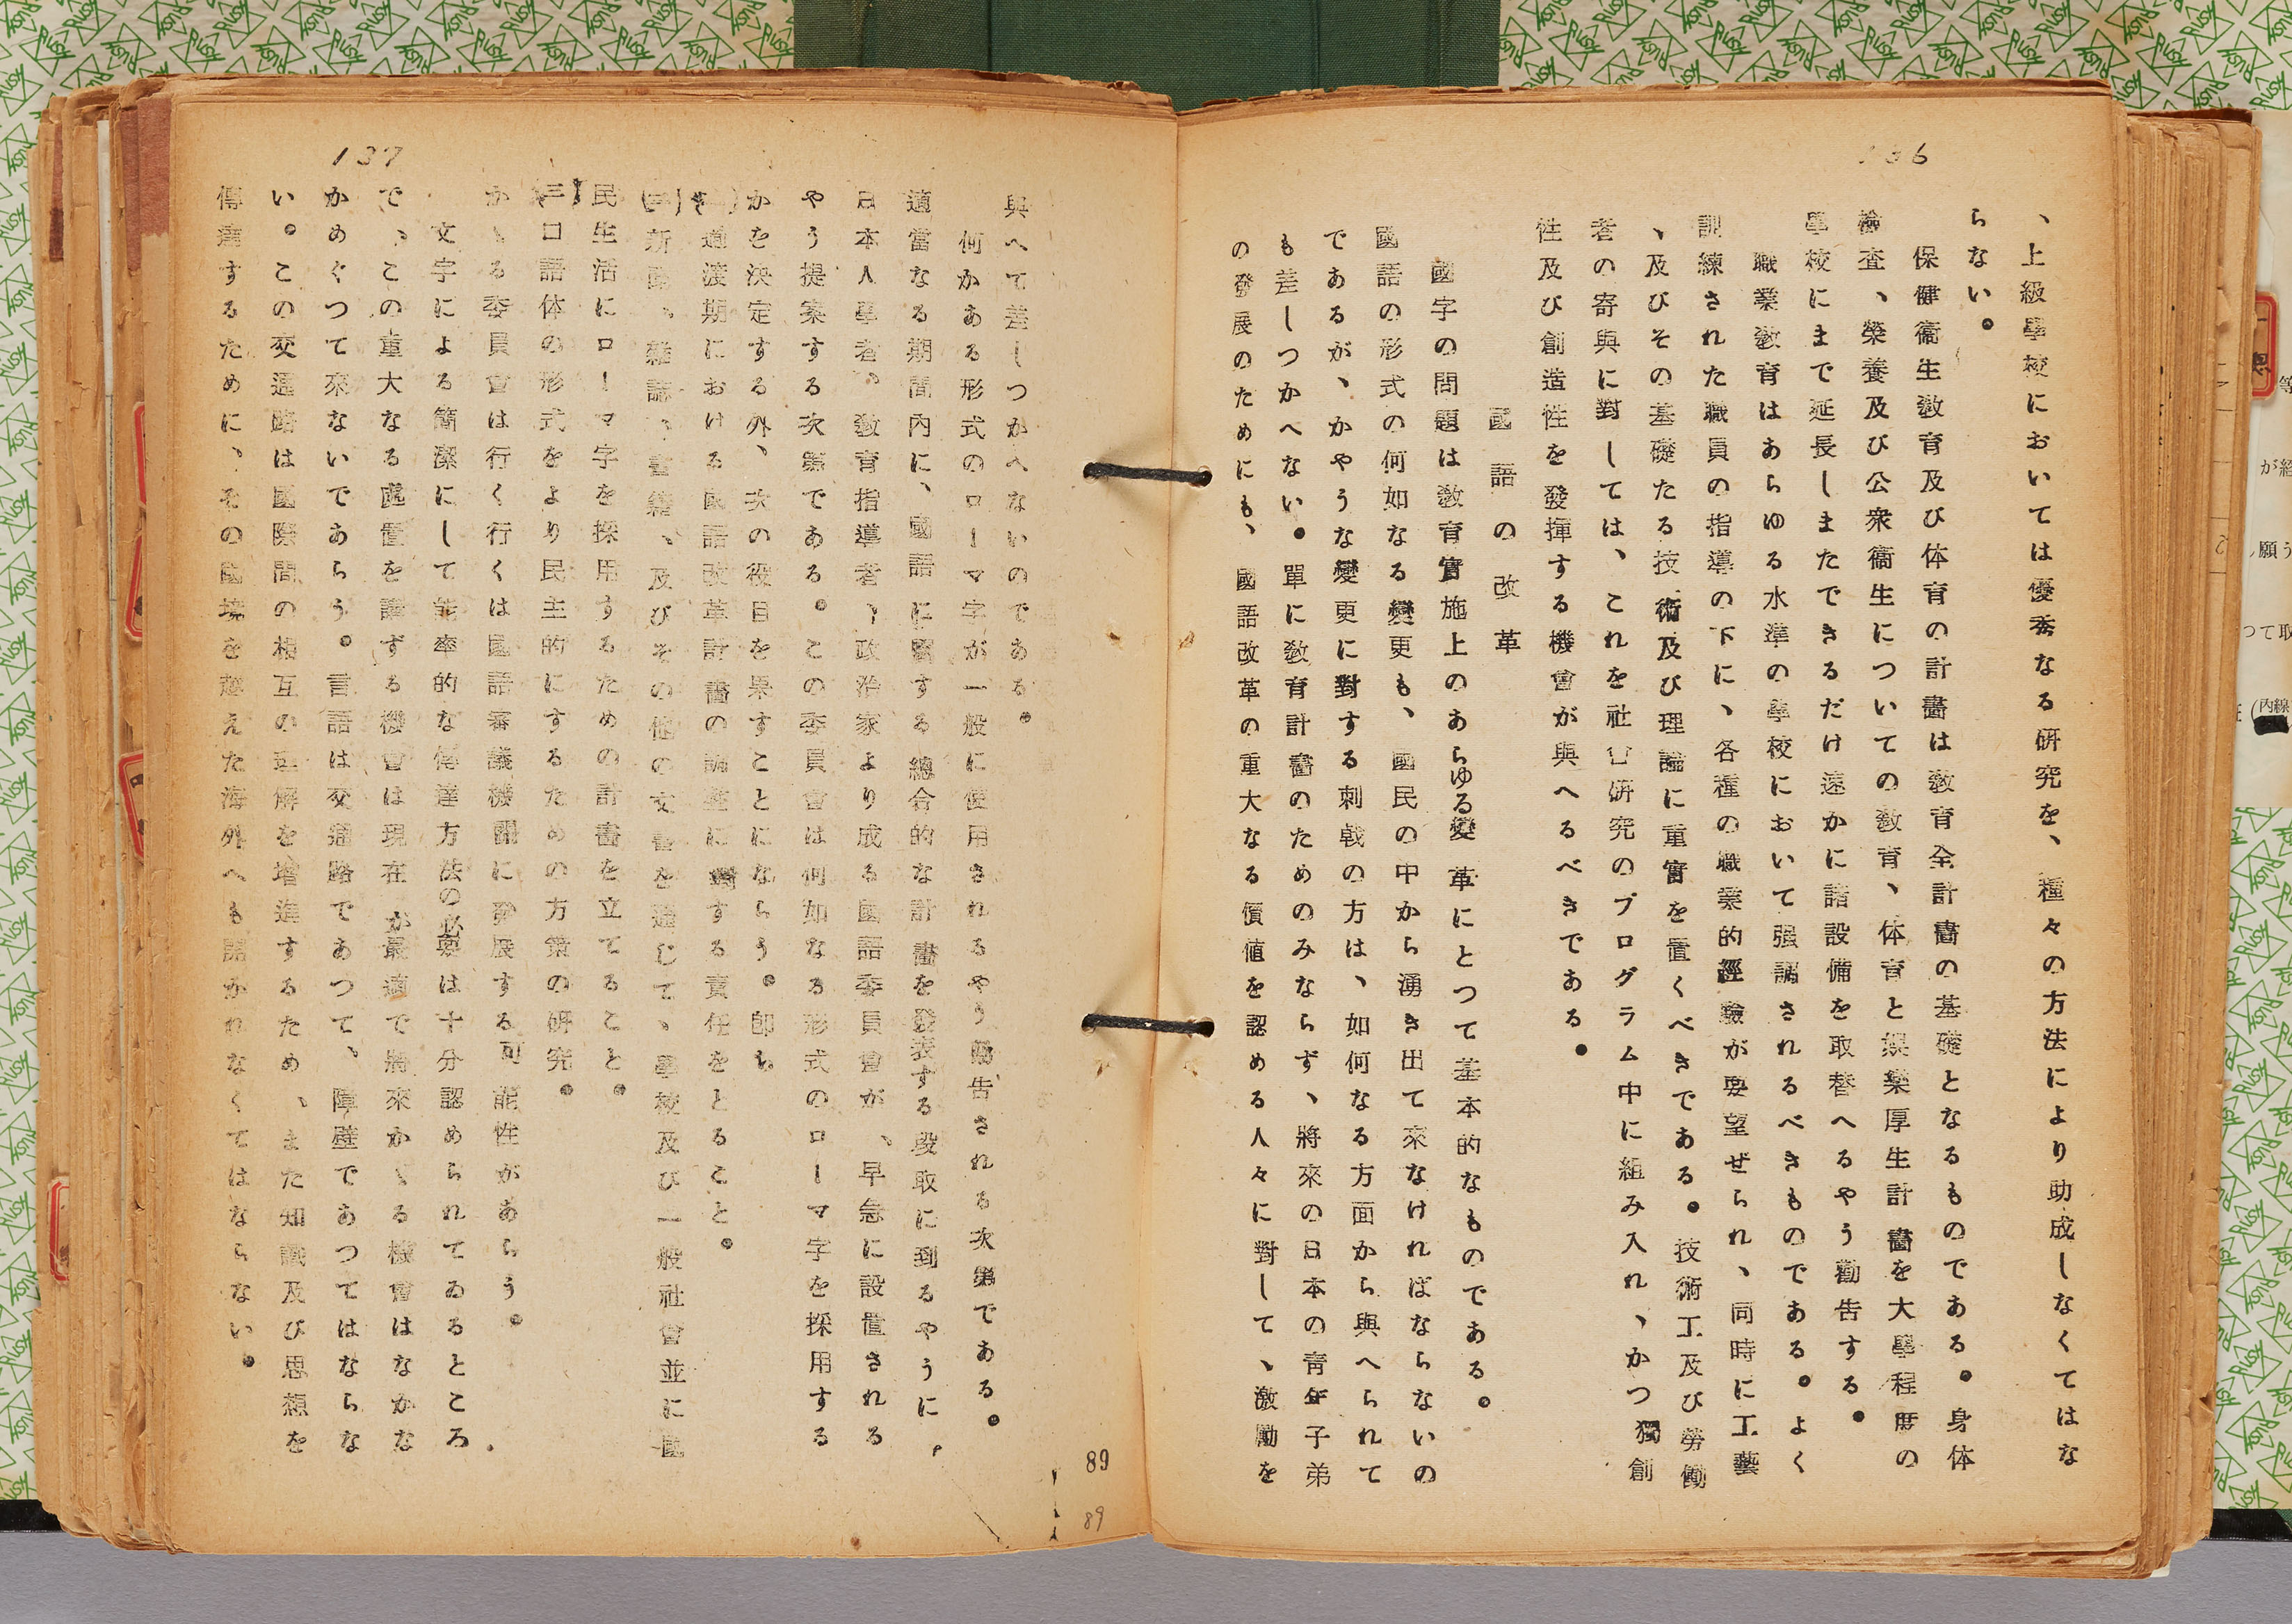 136
、上級學校においては優秀なる研究を、種々の方法により助成しなくてはな
らない。
保健衞生敎育及び体育の計畫は敎育全計畫の基礎となるものである。身体
檢査、榮養及び公衆衞生についての敎育、体育と娯樂厚生計畫を大學程度の
學校にまで延長しまたできるだけ速かに諸設備を取替へるやう勸告する。
職業敎育はあらゆる水準の學校において强調されるべきものである。よく
訓練された職員の指導の下に、各種の職業的經驗が要望ぜられ、同時に工藝
、及びその基礎たる技術及び理論に重實を置くべきである。技術工及び勞働
者の寄與に對しては、これを社会研究のブログラム中に組み入れ、かつ獨創
性及び創造性を發揮する機會が與へるべきである。
國語の改革
國字の問題は敎育實施上のあらゆる變革にとつて基本的なものである。
國語の形式の何如なる變更も、國民の中から湧き出て來なければならないの
であるが、かやうな變更に對する刺戟の方は、如何なる方面から與へられて
も差しつかへない。單に敎育計畫のためのみならず、將來の日本の靑年子弟
の發展のためにも、國語改革の重大なる價値を認める人々に對して、激勵を
137
與へて差しつかへないのである。
何かある形式のローマ字が一般に使用されるやう勸告される次第である。
適當なる期間內に、國語に關する總合的な計畫を發表する段取に到るやうに、
日本人學者、敎育指導者、政治家より成る國語委員會が、早急に設置される
やう提案する次第である。この委員會は何如なる形式のローマ字を採用する
かを決定する外、次の役目を果すことにならう。卽ち
(一)過渡期における國語改革計畫の論述に對する責任をとること。
(二)新聞、雜誌、書籍、及びその他の文書を通じて、學校及び一般社會並に國
民生活にローマ字を採用するための計畫を立てること。
(三)口語体の形式をより民主的にするための方策の研究。
かゝる委員會は行く行くは國語審議機關に發展する可能性があらう。
文字による簡潔にして能率的な傳達方法の必要は十分認められてゐるところ
で、この重大なる處置を講ずる機會は現在が最適で將來かゝる機會はなかな
かめぐつて來ないであらう。言語は交通路であつて、障壁であつてはならな
い。この交通路は國際間の相互の理解を增進するため、また知識及び思想を
傳達するために、その國境を越えた海外へも開かれなくてはならない。
89
89